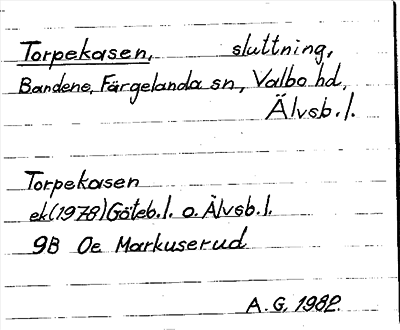 Torpekasen, sluttning,
Bandene, Färgelanda sn, Valbo hd,
Älvsb. l.
Torpekasen
ek (1978) Göteb. l. o. Älvsb. l.
9B Oe Markuserud
A. G. 1982.